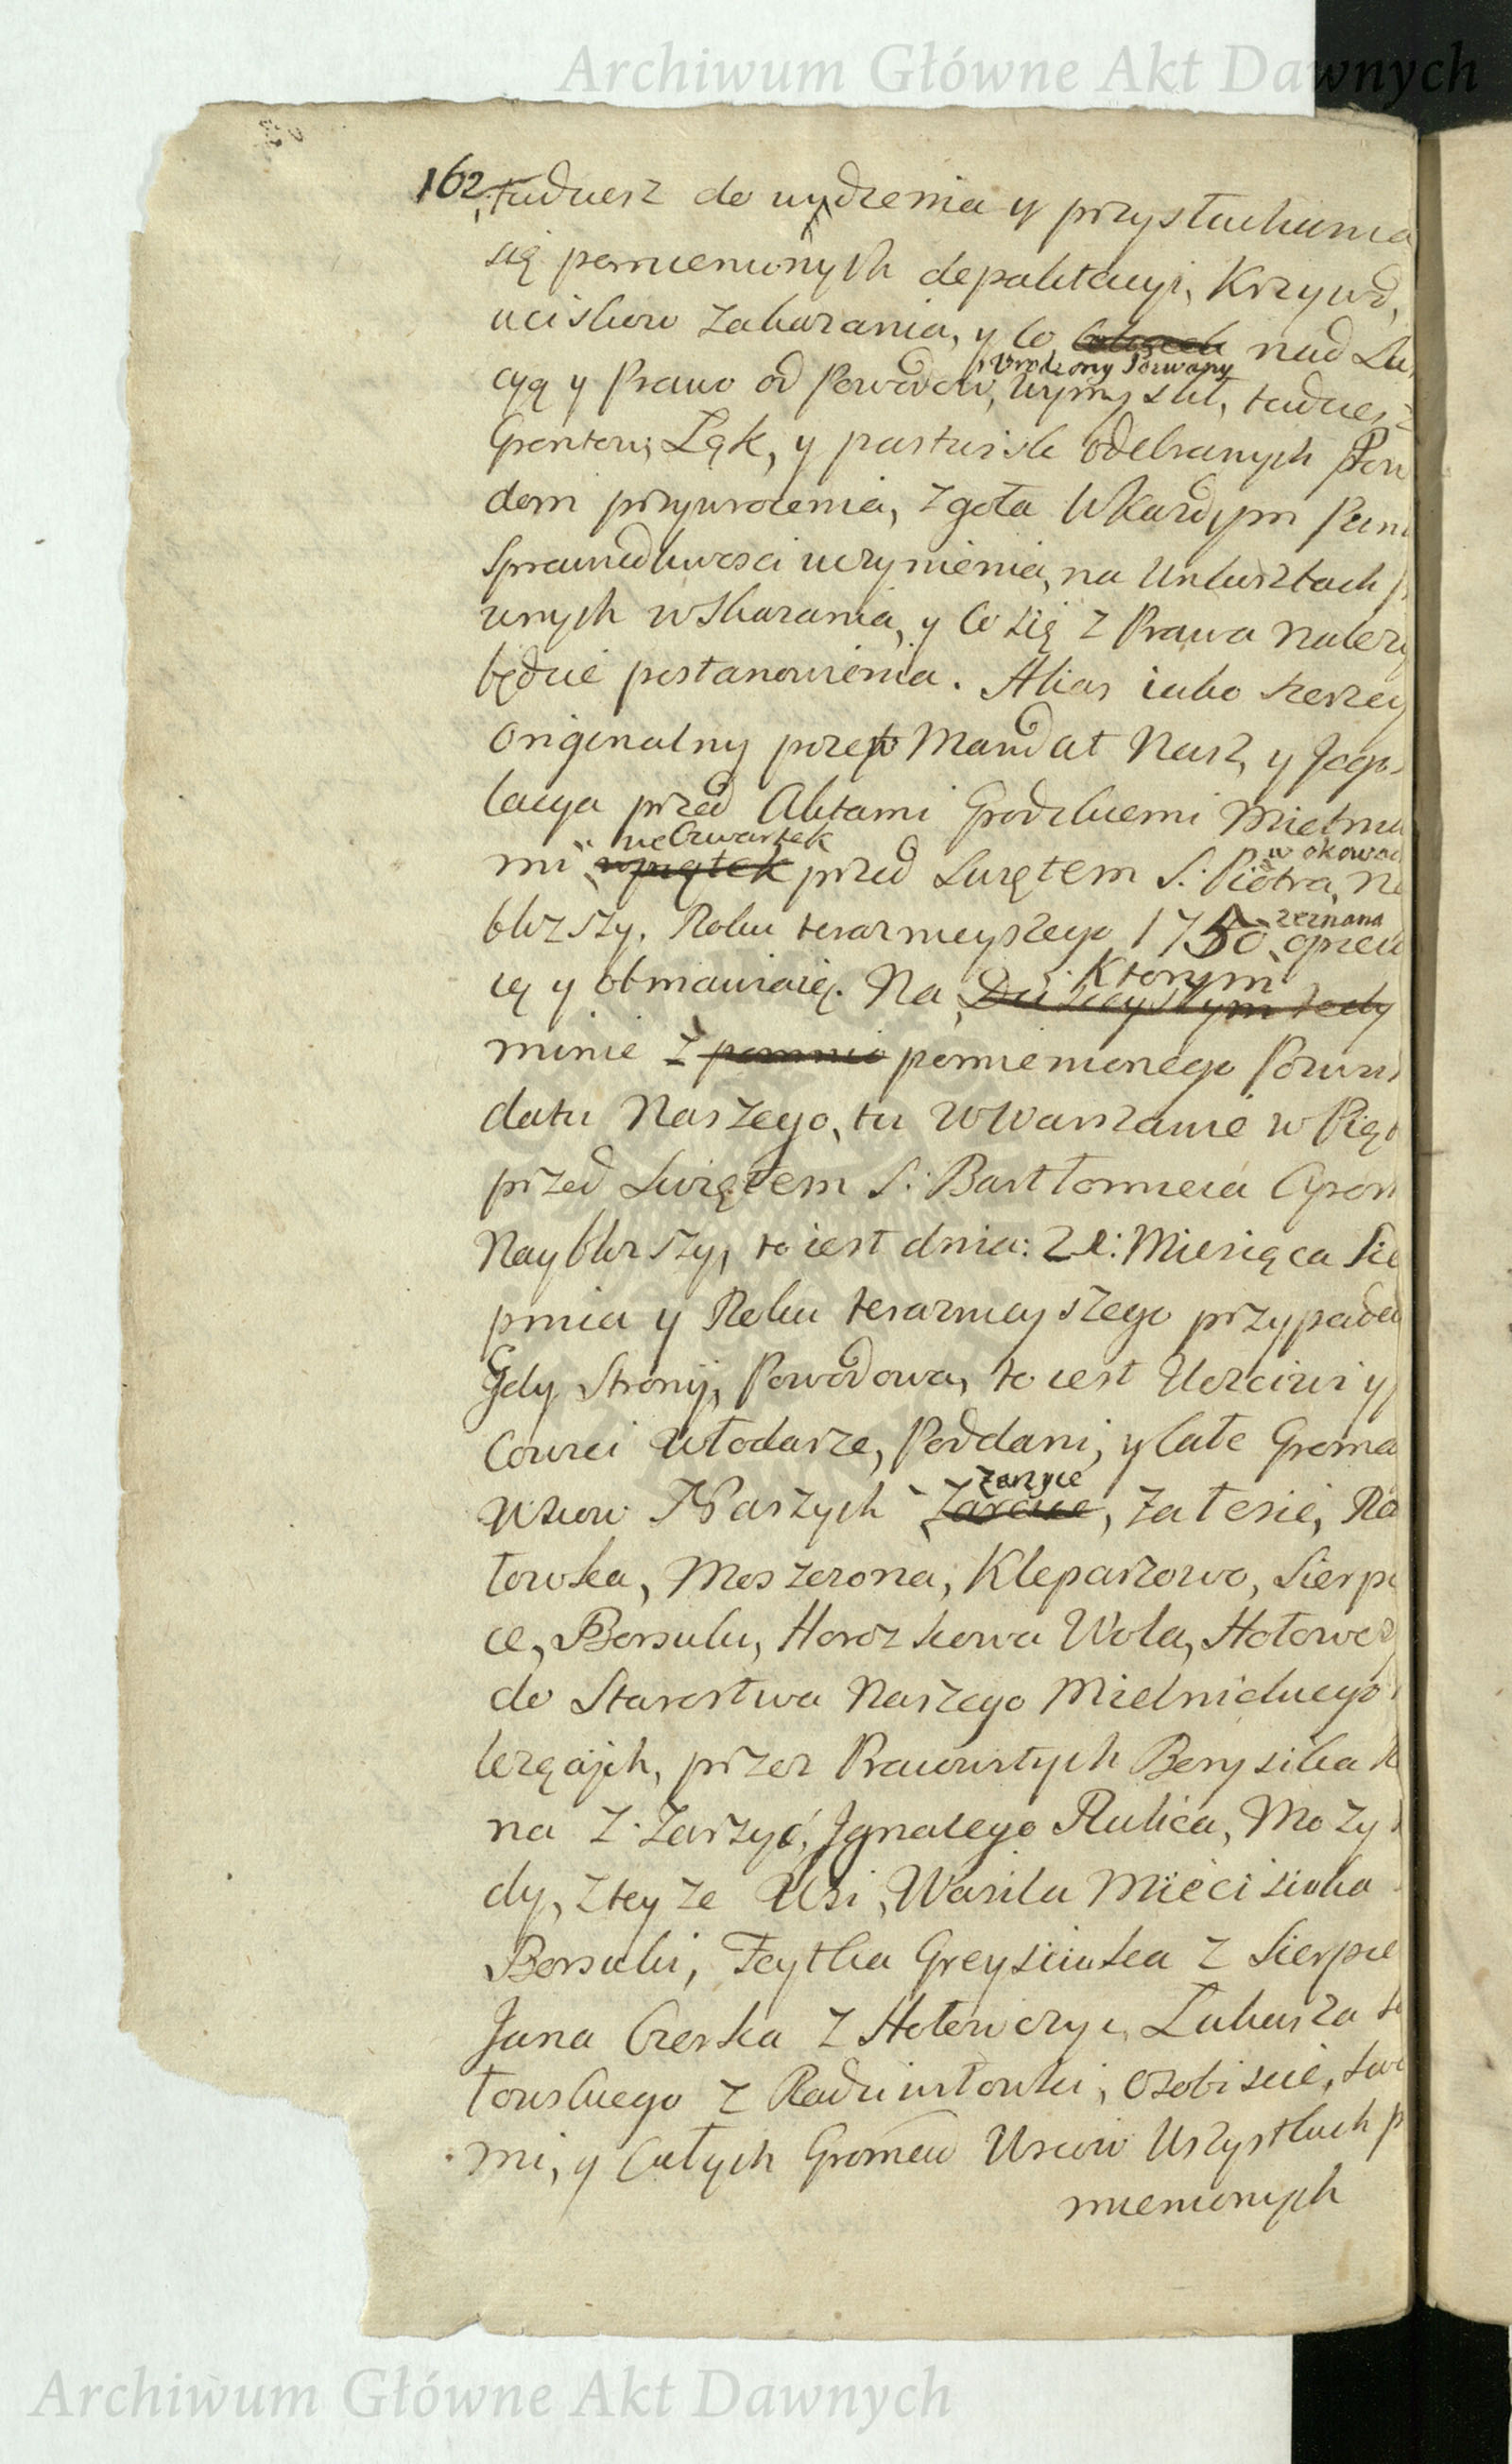 Archiwum Główne Akt Dawnych
162
tudziesz do wydzenia y przysłuchania
się pomienionych depaktacyi, Krzywd,
uciskow zakazania, y co nad Lu
Urodzony Pozwany
cyą y Prawo od Powodow, wymyslił, tudziesz
Grontow, Łąk, y pastwisk odebranych Pow
dom przywrocenia, zgoła w każdym Pun
sprawiedliwosci uczynienia, na Unkosztach p
wnych wskazania, y co się z Prawa należy
będzie postanowienia. Alias iako szerzey
Originalny przeto Mandat Nasz, y Jego
lacya przed Aktami Grodzkiemi Mielni
we Czwartek
w okowach
mi w piątek przed Swiętem S: Piotra, Na
zeznana
blizszy, Roku teraznieyszego 1750 opiew
Ktorym
ią y obmawiaią. Na Dzisieyszym tedy
minie z pomnio pomienionego Pozwu
datu Naszego, tu w Warszawie w Pią
przed Swiętem S: Bartłomieia Apos
Nayblizszy, to iest dnia: 21: Miesiąca Sie
pnia y Roku teraznieyszego przypad
Gdy Strony, Powodowa, to iest Uczciwi y
cowici Włodarze, Poddani, y całe Groma
Zarzyce
Wsiow Naszych Zarcice, Zalesie, Ra
towka, Moszczona, Klepaczowo, Sierpi
ce, Borsuki, Horoszkowa Wola, Hołowcz
do Starostwa Naszego Mielnickiego
lezących, przez Pracowitych Borysika
na z Zarzyć, Ignacego Kulica, Mozy
dy, z teyze Wsi, Wasila Miecisiuka
Borsuki, Feytka Greysiuka z Sierpie
Jana Czerka z Hołowczyc, Łukasza
towskiego z Radziwiłowki, osobiscie, swe
mi, y całych Gromad Wsiow Wszystkich p
mienionych
Archiwum Główne Akt Dawnych